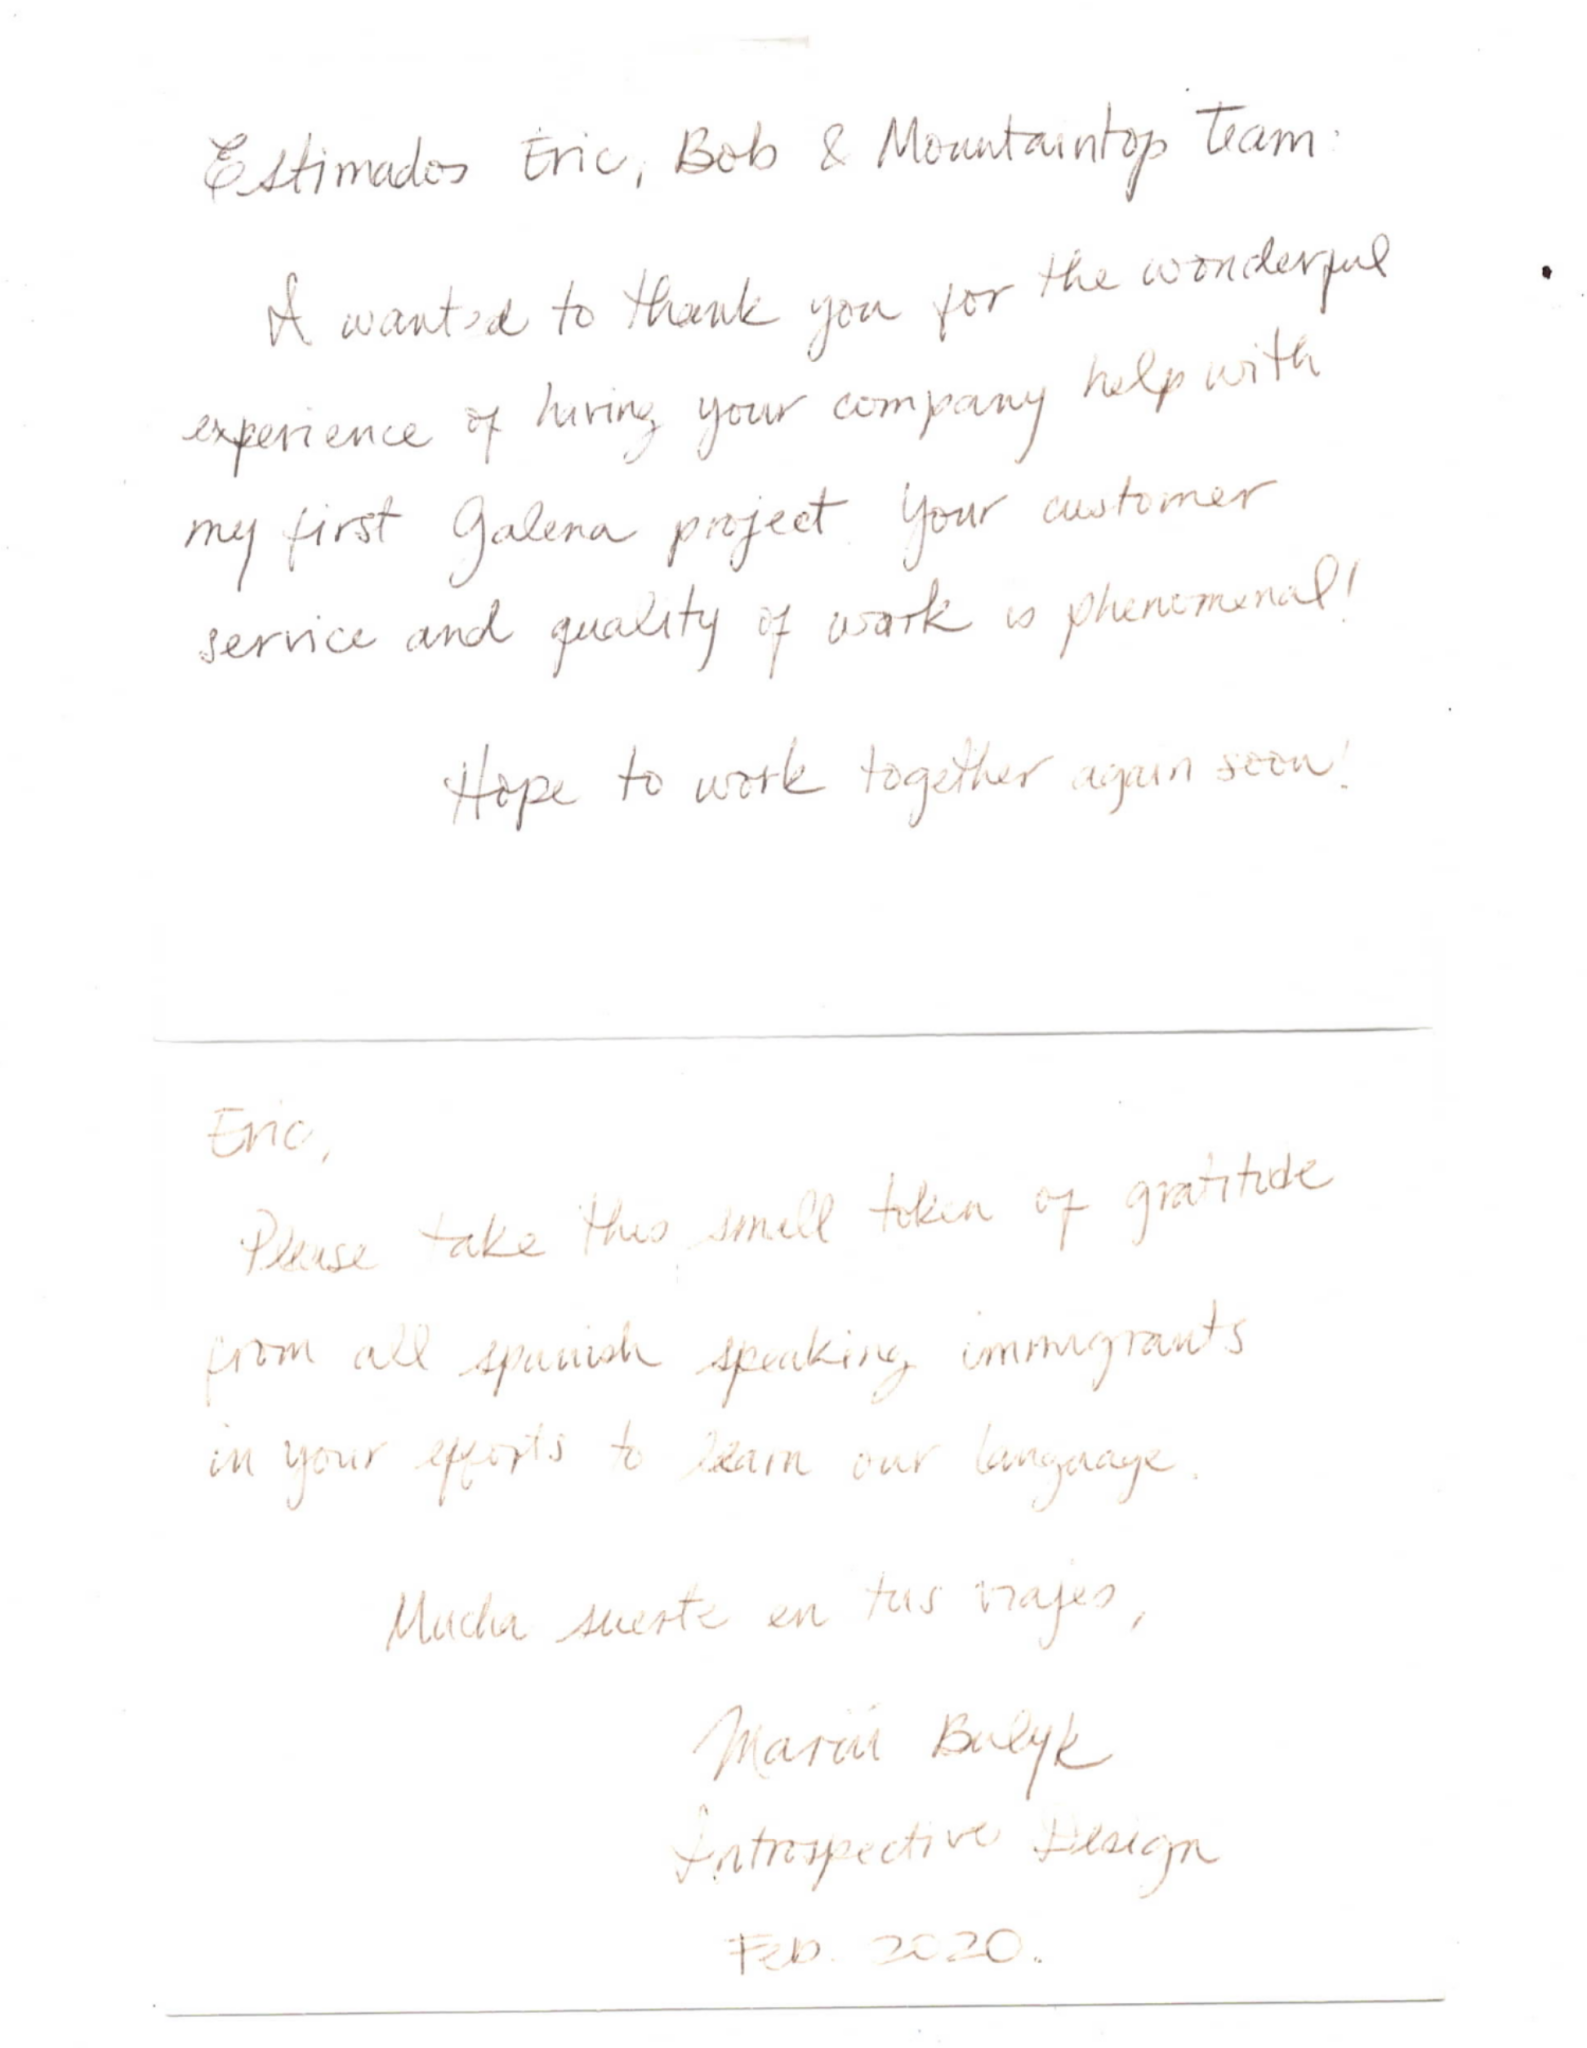 Estimados Eric, Bob & Mountaintop Team:
I wanted to thank you for the wonderful
experience of having your company help with
my first Galena project. Your customer
service and quality of work is phenomenal!
Hope to work together again soon!
Eric,
Please take this small token of gratitude
from all spanish speaking immigrants
in your efforts to learn our language.
Mucha suerte en tus viajes,
Balyk
Introspective Design
Feb. 2020.